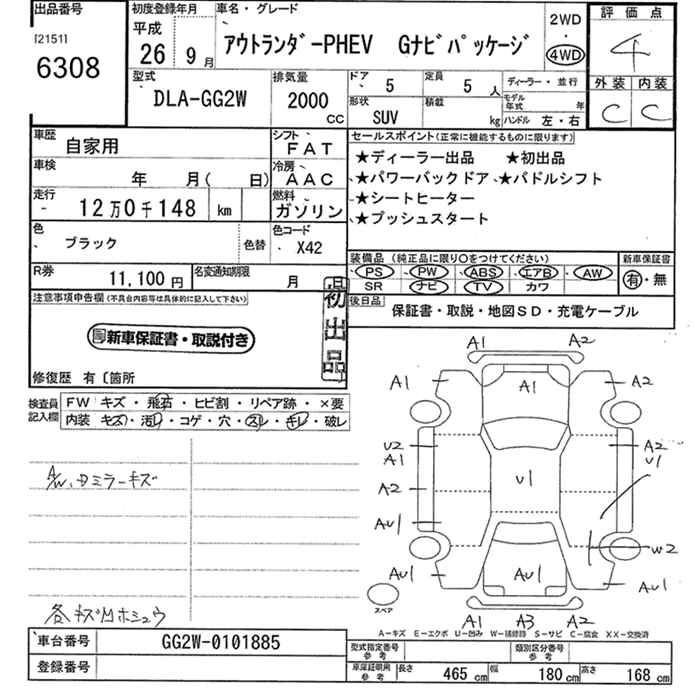 出品番号 初度登録年月 車名・グレード 2WD 評価点
I21511 平成
6308 26 年 9 月 アウトランダ゛-PHEV Gナビパッケージ 4WD 4
型式 排気量 ドア 5 定員 5 人 ディーラー・並行 外装 内装
DLA-GG2W 2000 CC 形状 SUV 積載 kg モデル年式 年 C C
ハンドル 左・右
車歴 自家用 シフト FAT セールスポイント(正常に機能するものに限ります)
車検 年 月( 日) 冷房 AAC ★ディーラー出品 ★初出品
走行 12万0千148 km 燃料 ガソリン ★パワーバックドア ★パドルシフト
★シートヒーター
★プッシュスタート
色 ブラック 色替 色コード X42
装備品 (純正品に限り○をつけてください) 新車保証書
R券 11,100円 名変通知期限 月 PS PW ABS エアB AW 有・無
SR ナビ TV カワ
注意事項申告欄(不具合内容等は具体的に記入して下さい) 初出品 後日品 保証書・取説・地図SD・充電ケーブル
新車保証書・取説付き
修復歴 有〔箇所
検査員記入欄 FW キズ・飛石・ヒビ割・リペア跡・×要
内装 キズ・汚レ・コゲ・穴・スレ・キレ・破レ
A1 A2
A1 A1 A2
U2 A2
A1 U1 U1
A2
AU1
W2
AU1 AU1 AU1
A1 A3 A2
スペア
A/W、ドミラーキズ
各キズ凹ホシュウ
A-キズ E-エクボ U-凹み W-補修跡 S-サビ C-腐食 XX-交換済
車台番号 GG2W-0101885 型式指定番号参考 類別区分番号参考
登録番号 車庫証明用参考 長さ 465 cm 幅 180 cm 高さ 168 cm